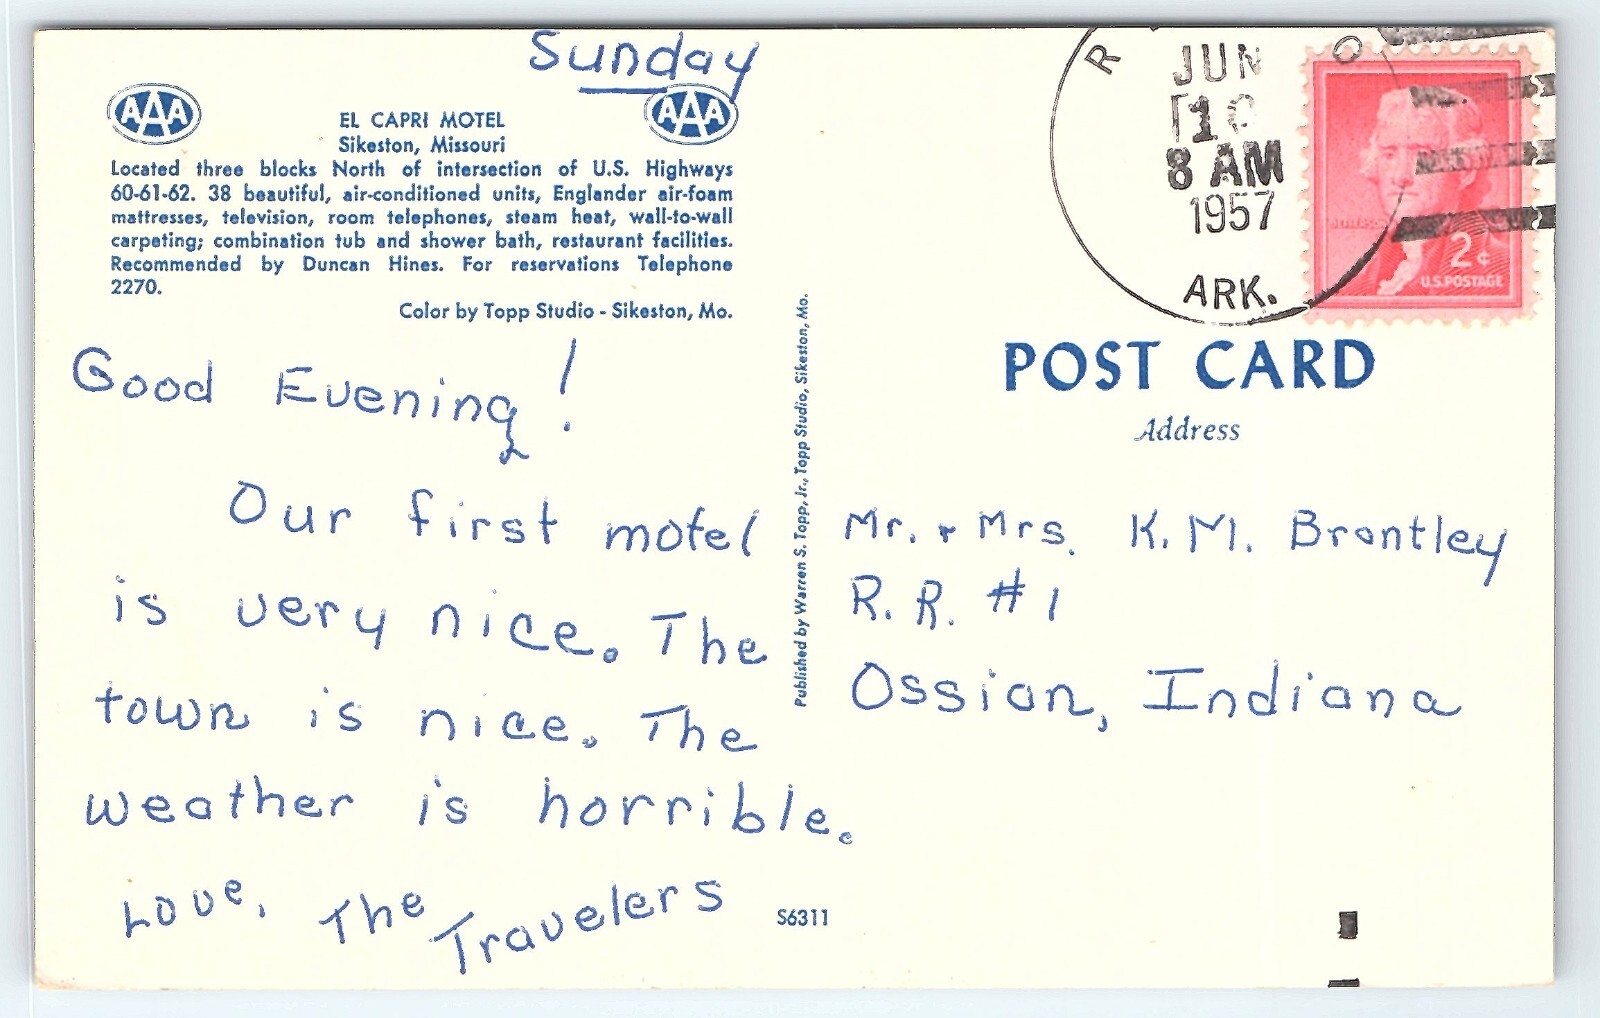 Sunday
AAA AAA
EL CAPRI MOTEL
Sikeston, Missouri
Located three blocks North of intersection of U.S. Highways
60-61-62. 38 beautiful, air-conditioned units, Englander air-foam
mattresses, television, room telephones, steam heat, wall-to-wall
carpeting; combination tub and shower bath, restaurant facilities.
Recommended by Duncan Hines. For reservations Telephone
2270.
Color by Topp Studio - Sikeston, Mo.
Good Evening!
Our first motel
is very nice. The
town is nice. The
weather is horrible.
Love, The
Travelers
S6311
Published by Warren S. Topp, Jr., Topp Studio, Sikeston, Mo.
JUN
8 AM
1957
ARK.
JEFFERSON
2¢
U.S. POSTAGE
POST CARD
Address
Mr. + Mrs. K. M. Brantley
R. R. #1
Ossian, Indiana